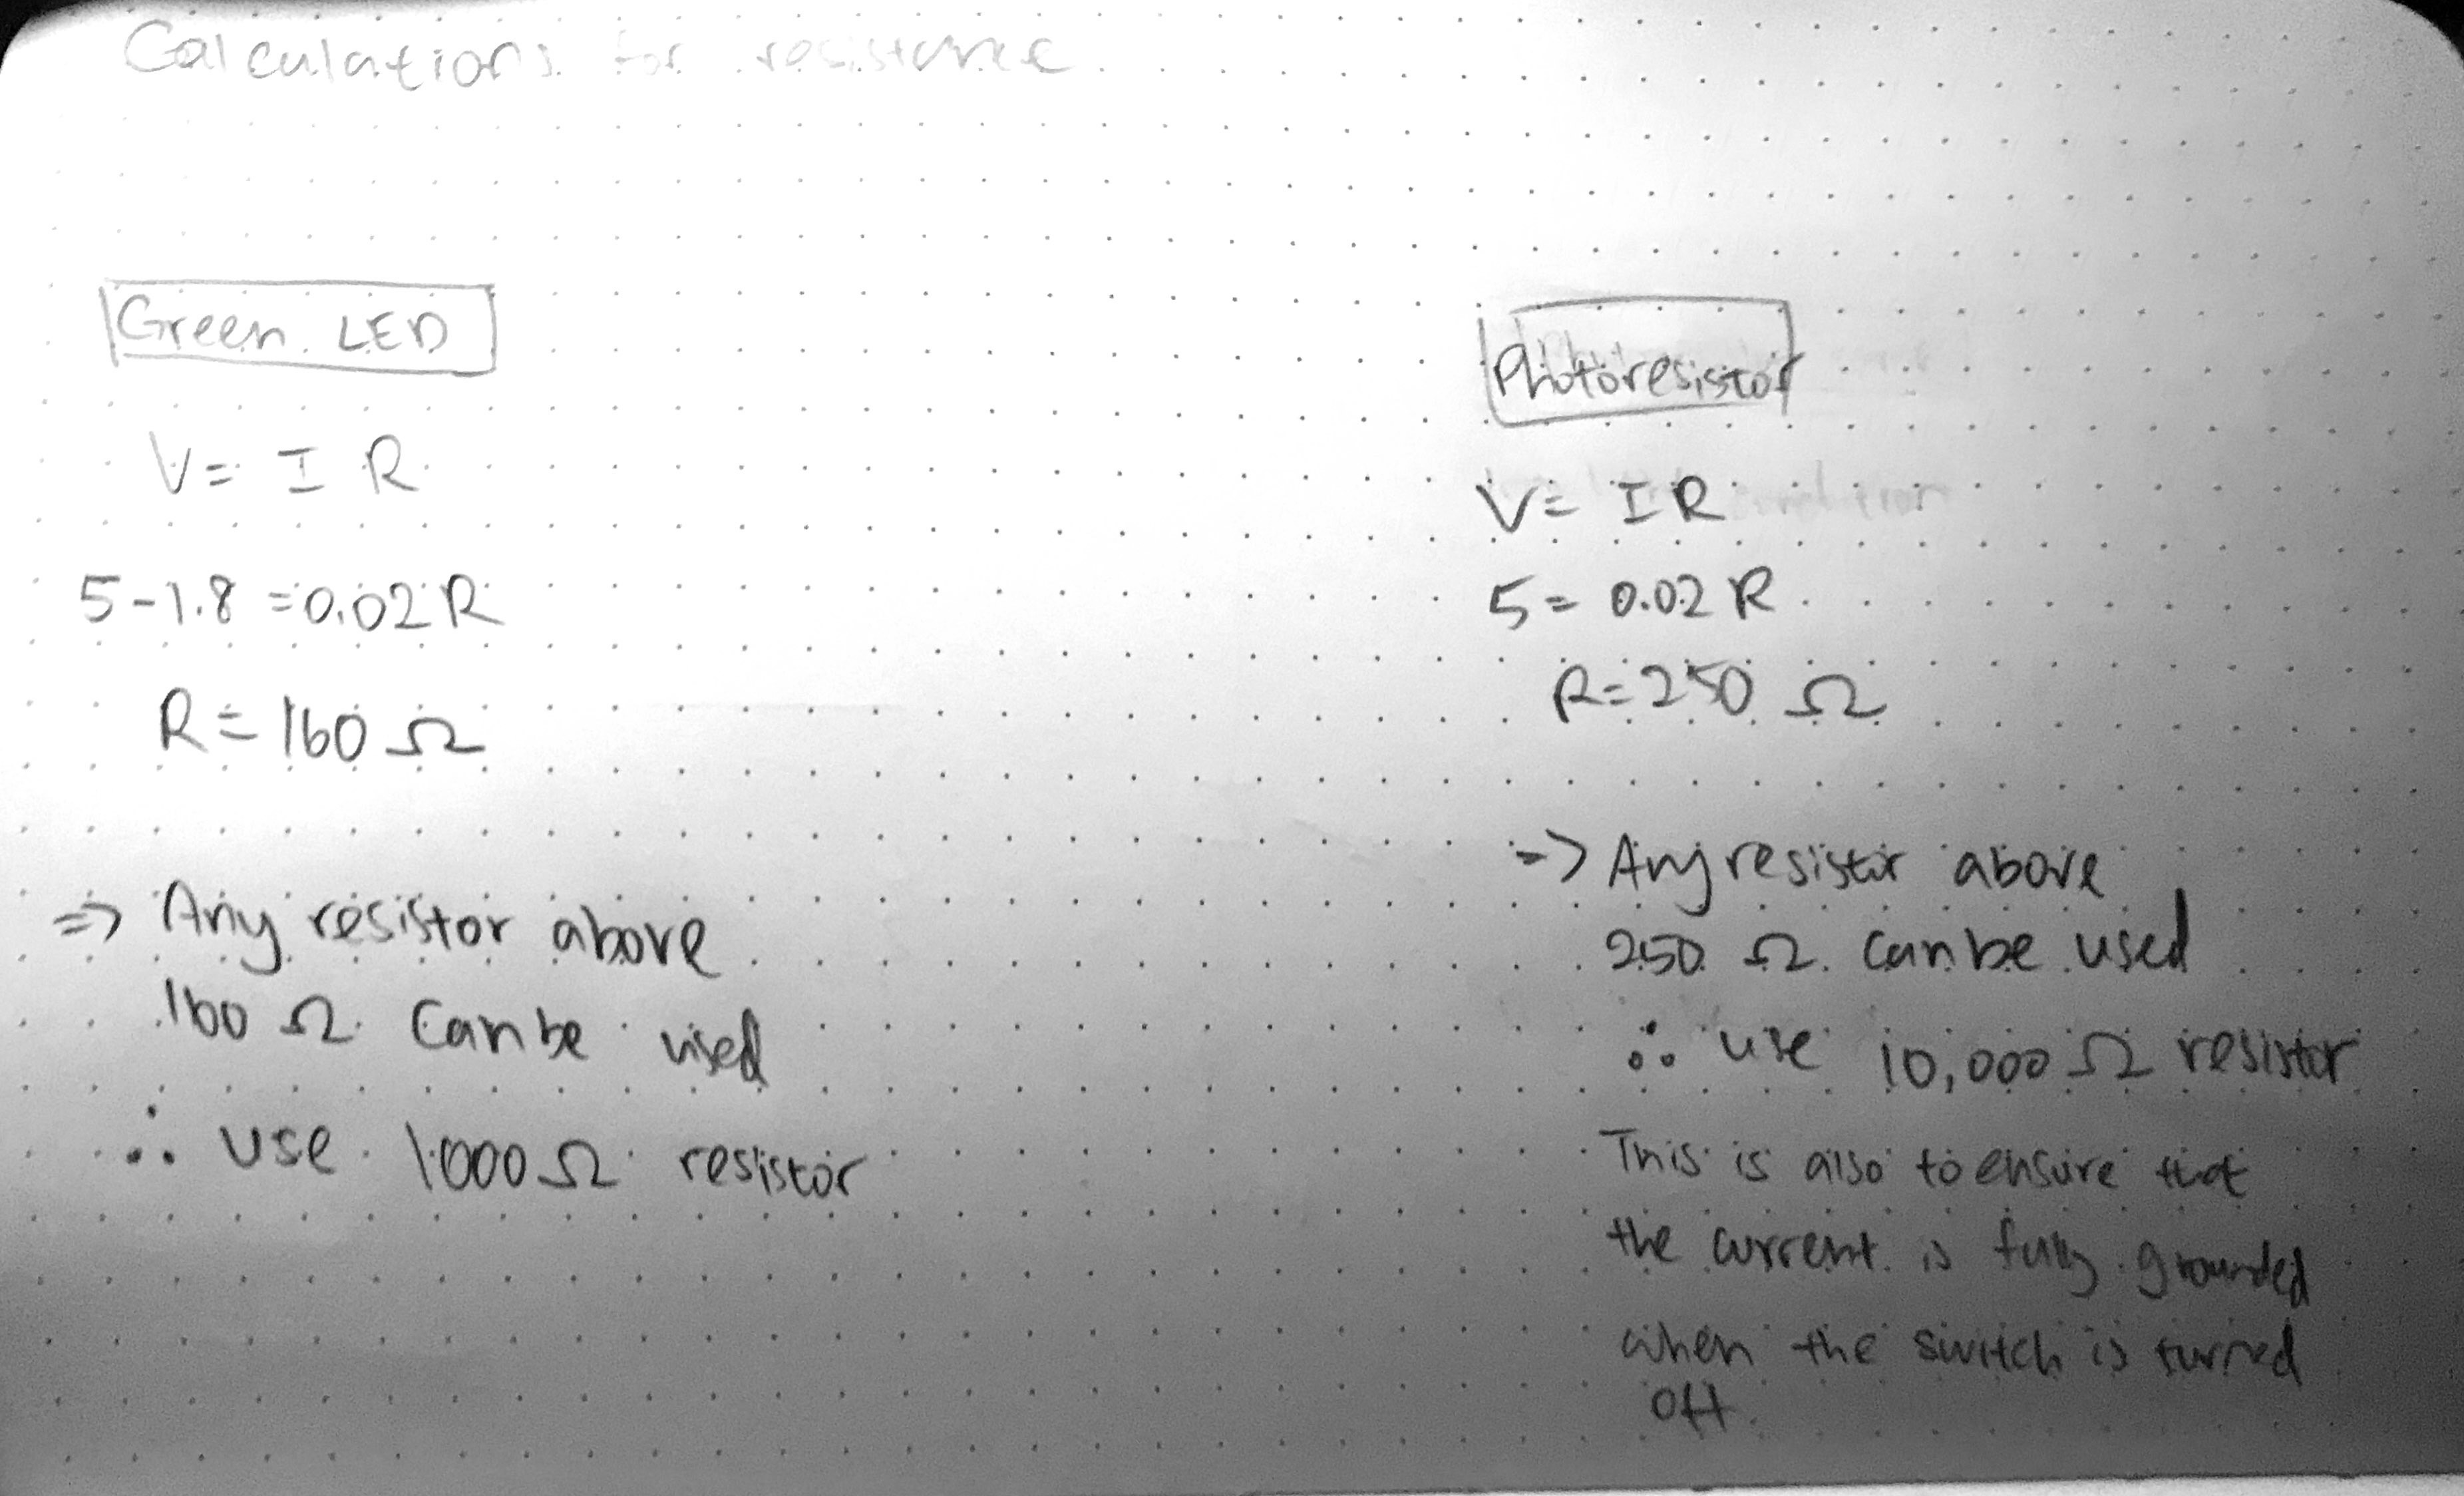 Calculations for resistance
Green LED
V = I R
5-1.8 = 0.02 R
R = 160 Ω
=> Any resistor above
160 Ω can be used
∴ use 1000 Ω resistor
Photoresistor
V = I R
5 = 0.02 R
R = 250 Ω
=> Any resistor above
250 Ω can be used
∴ use 10,000 Ω resistor
This is also to ensure that
the current is fully grounded
when the switch is turned
off.